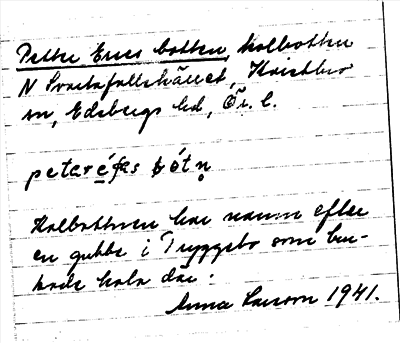 Petter Eries botten, kolbotten
N Svartafallshället, Kvistbro
sn, Edsbergs hd, Ör. l.
petar é bótn
Kolbottnen har namn efter
en gubbe i Tryggebo som bru-
kade kola där.
Anna Larsson 1941.